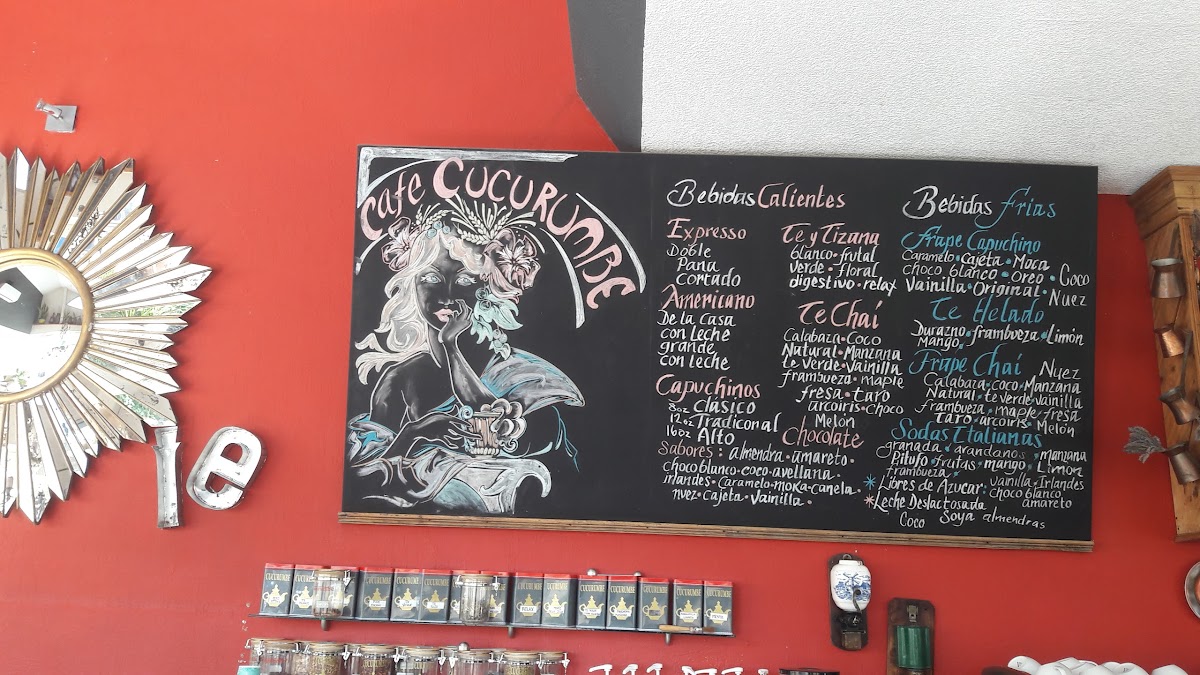 Cafe CUCURUMBE
Bebidas Calientes
Expresso
Doble
Pana
cortado
Americano
De la casa
con Leche
grande
con leche
Capuchinos
8oz Clásico
12oz Tradiconal
16oz Alto
Sabores: almendra • amareto •
choco blanco • coco • avellana •
irlandes • Caramelo • moka • canela •
nuez • Cajeta • Vainilla •
Te y Tizana
blanco • frutal
verde • floral
digestivo • relax
Te Chaí
Calabaza • Coco
Natural • Manzana
te Verde • Vainilla
frambueza • maple
fresa • taro
arcoiris • choco
Melón
Chocolate
Bebidas frías
Frape Capuchino
Caramelo • Cajeta • Moca
choco blanco • oreo • Coco
Vainilla • Original • Nuez
Te Helado
Durazno • frambueza • Limón
Mango •
Frape Chaí Nuez
Calabaza • coco • Manzana
Natural • te verde • vainilla
frambueza • maple • fresa
taro • arcoiris • Melón
Sodas Italianas
granada • arandanos • manzana
Pitufo • frutas • mango • Limon
frambueza •
* Libres de Azucar: vainilla • Irlandes
choco blanco
amareto
* Leche Deslactosada
Coco Soya almendras
re
CUCURUMBE CUCURUMBE CUCURUMBE CUCURUMBE CUCURUMBE
RELAX